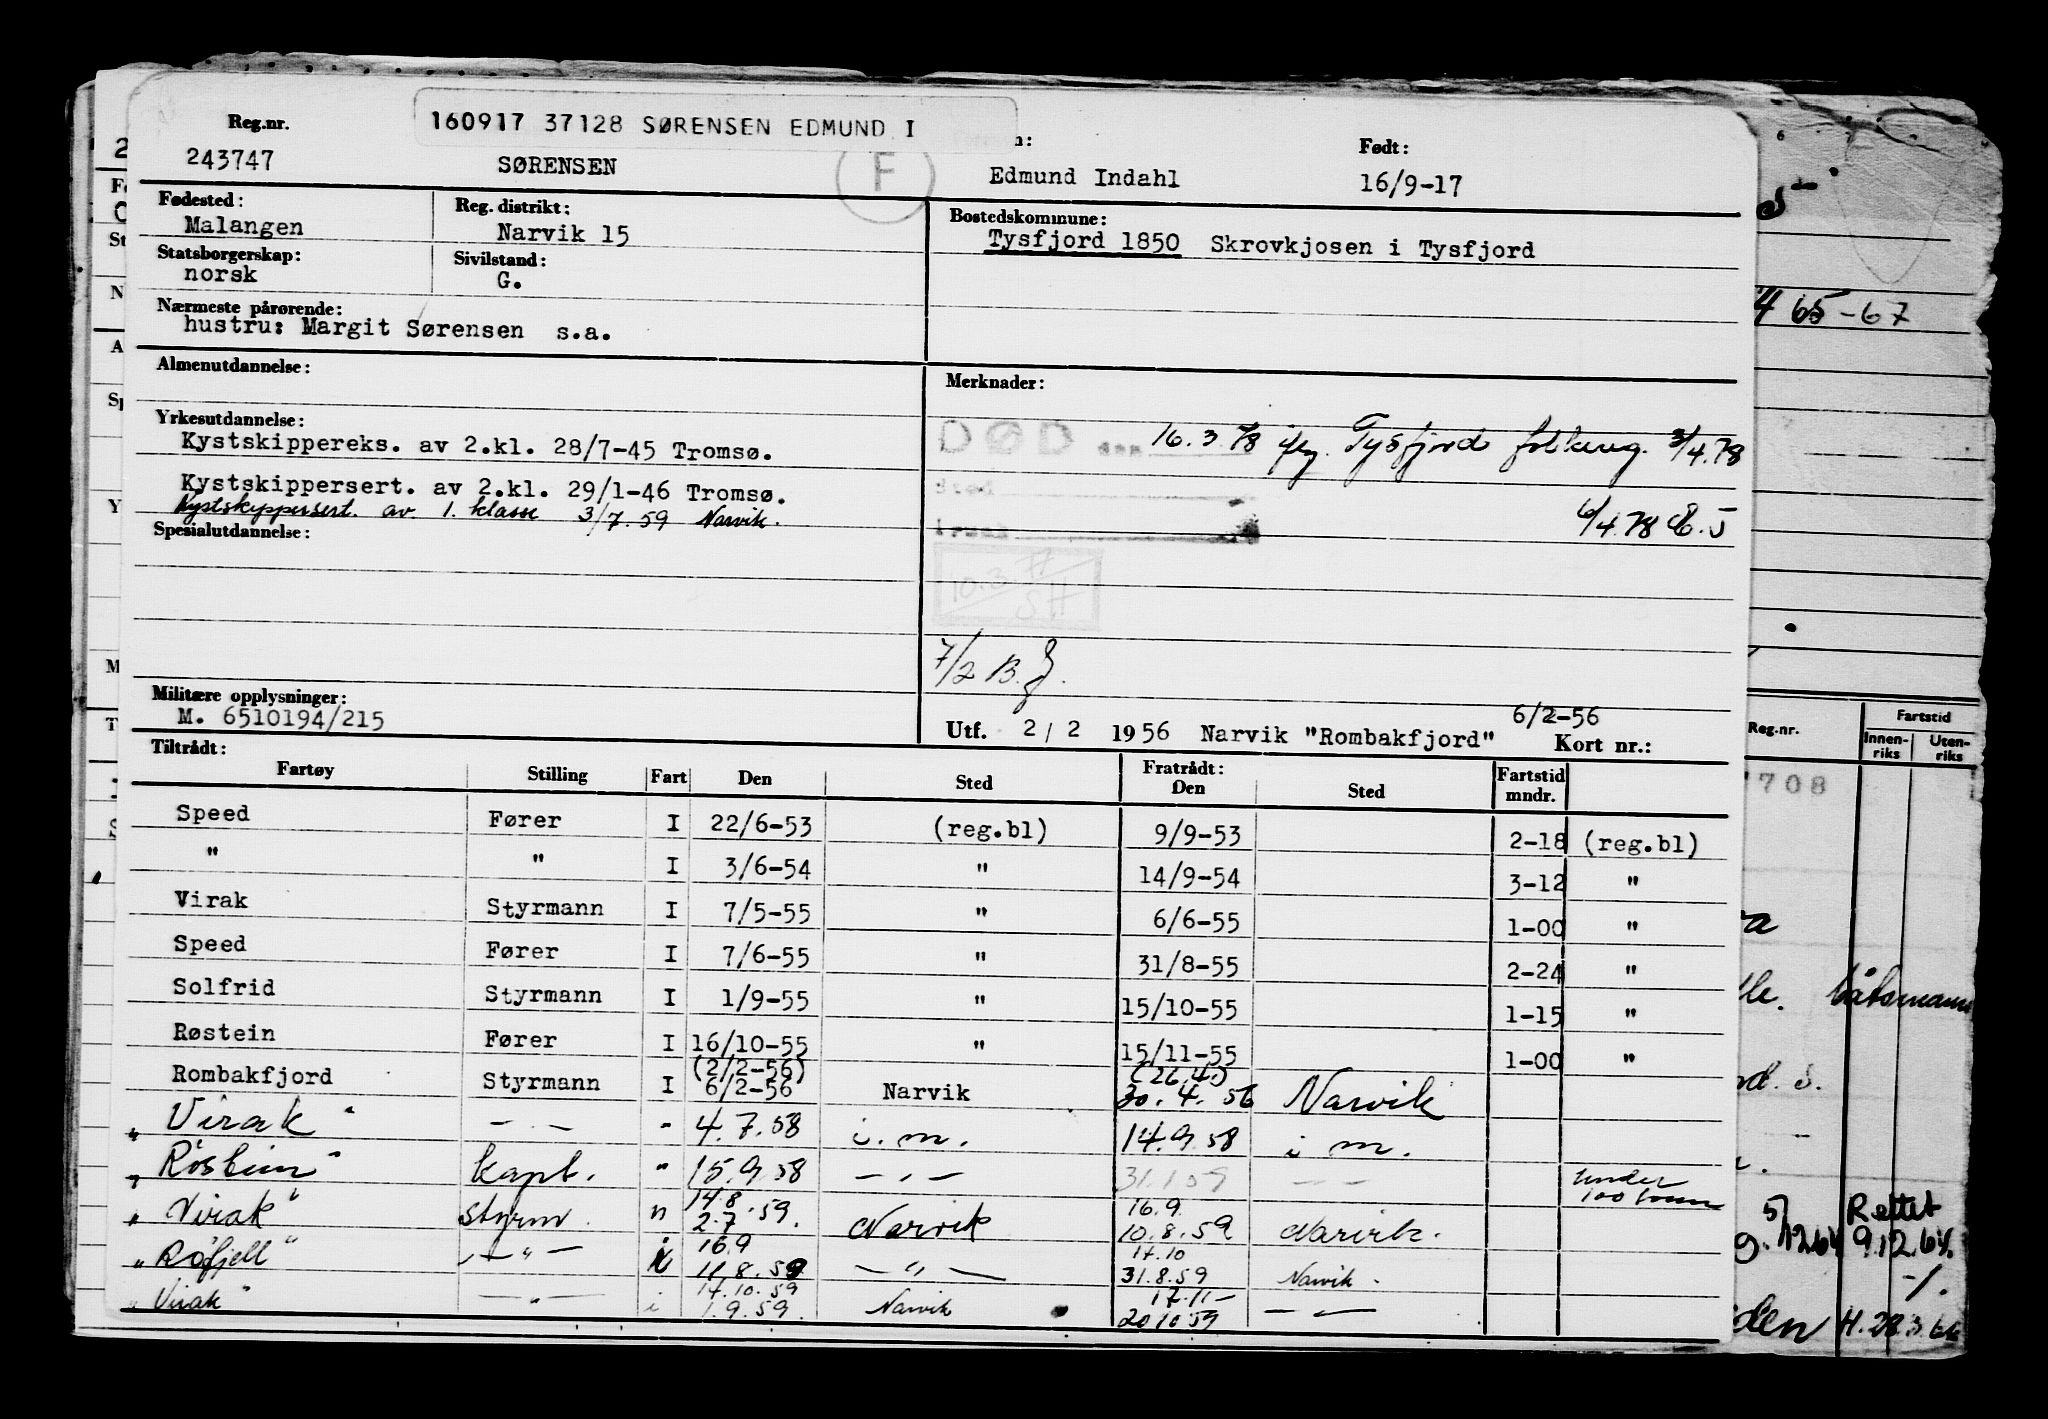 160917 37128 SØRENSEN EDMUND I
Reg.nr. Født:
243747 SØRENSEN F Edmund Indahl 16/9-17
Fødested: Reg. distrikt: Bostedskommune:
Malangen Narvik 15 Tysfjord 1850 Skrovkjosen i Tysfjord
Statsborgerskap: Sivilstand:
norsk G.
Nærmeste pårørende:
hustru: Margit Sørensen s.a.
Almenutdannelse: Merknader:
Yrkesutdannelse:
Kystskippereks. av 2.kl. 28/7-45 Tromsø. DØD den 16.3.78 iflg. Tysfjord folkereg. 3/4.78
Kystskippersert. av 2.kl. 29/1-46 Tromsø. Sted
Kystskippersert. av 1. klasse 3/7.59 Narvik. 6/4.78
Spesialutdannelse: Årsak
10.3.77
SH
7/2 B.J.
Militære opplysninger:
M. 6510194/215 6/2-56
Utf. 2/2 1956 Narvik "Rombakfjord" Kort nr.:
Tiltrådt: Fratrådt:
Fartøy Stilling Fart Den Sted Den Sted Fartstid mndr.
Speed Fører I 22/6-53 (reg.bl) 9/9-53 2-18 (reg.bl)
" " I 3/6-54 " 14/9-54 3-12 "
Virak Styrmann I 7/5-55 " 6/6-55 1-00 "
Speed Fører I 7/6-55 " 31/8-55 2-24 "
Solfrid Styrmann I 1/9-55 " 15/10-55 1-15 "
Røstein Fører I 16/10-55 " 15/11-55 1-00 "
(2/2-56) (26.4.)
Rombakfjord Styrmann I 6/2-56 Narvik 30.4.56 Narvik
"Virak" - - " 4.7.58 i.m. 14.9.58 i m.
"Røstein" kapt. " 15.9.58 - " - 31.1.59 - - under 100 tonn
14.8 16.9.
"Virak" styrm. " 2.7.59. Narvik 10.8.59 Narvik.
16.9 17.10
"Røfjell" - " - i 11.8.59 - " - 31.8.59 Narvik.
17.10.59 17.11-
"Virak" - " - i 1.9.59. Narvik 20.10.59 - " -
65-67
Reg.nr. Fartstid
Innenriks Utenriks
708
båtsmann
5/12 64 Rettet
9.12.64.
H. 28.3.66